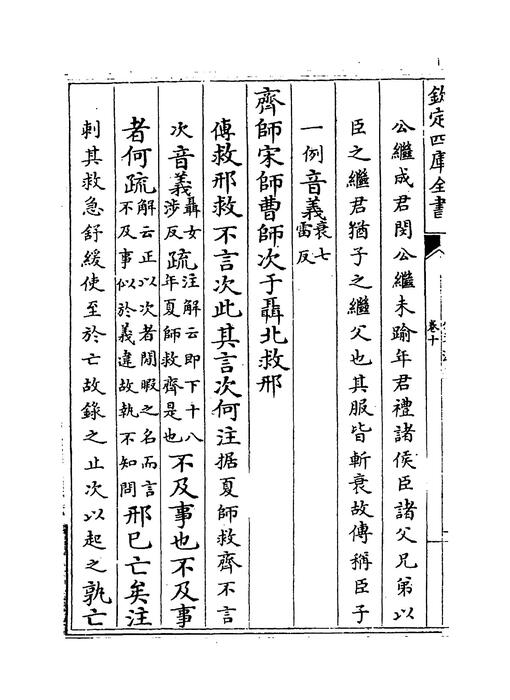 欽定四庫全書
卷十
公繼成君閔公繼未踰年君禮諸侯臣諸父兄弟以
臣之繼君猶子之繼父也其服皆斬衰故傳稱臣子
一例音義衰七雷反
齊師宋師曹師次于聶北救邢
傳救邢救不言次此其言次何注据夏師救齊不言
次音義聶女涉反疏注解云即下十八年夏師救齊是也不及事也不及事
者何疏解云正以次者閒暇之名而言不及事似於義違故執不知問邢已亡矣注
刺其救急舒緩使至於亡故錄之止次以起之孰亡